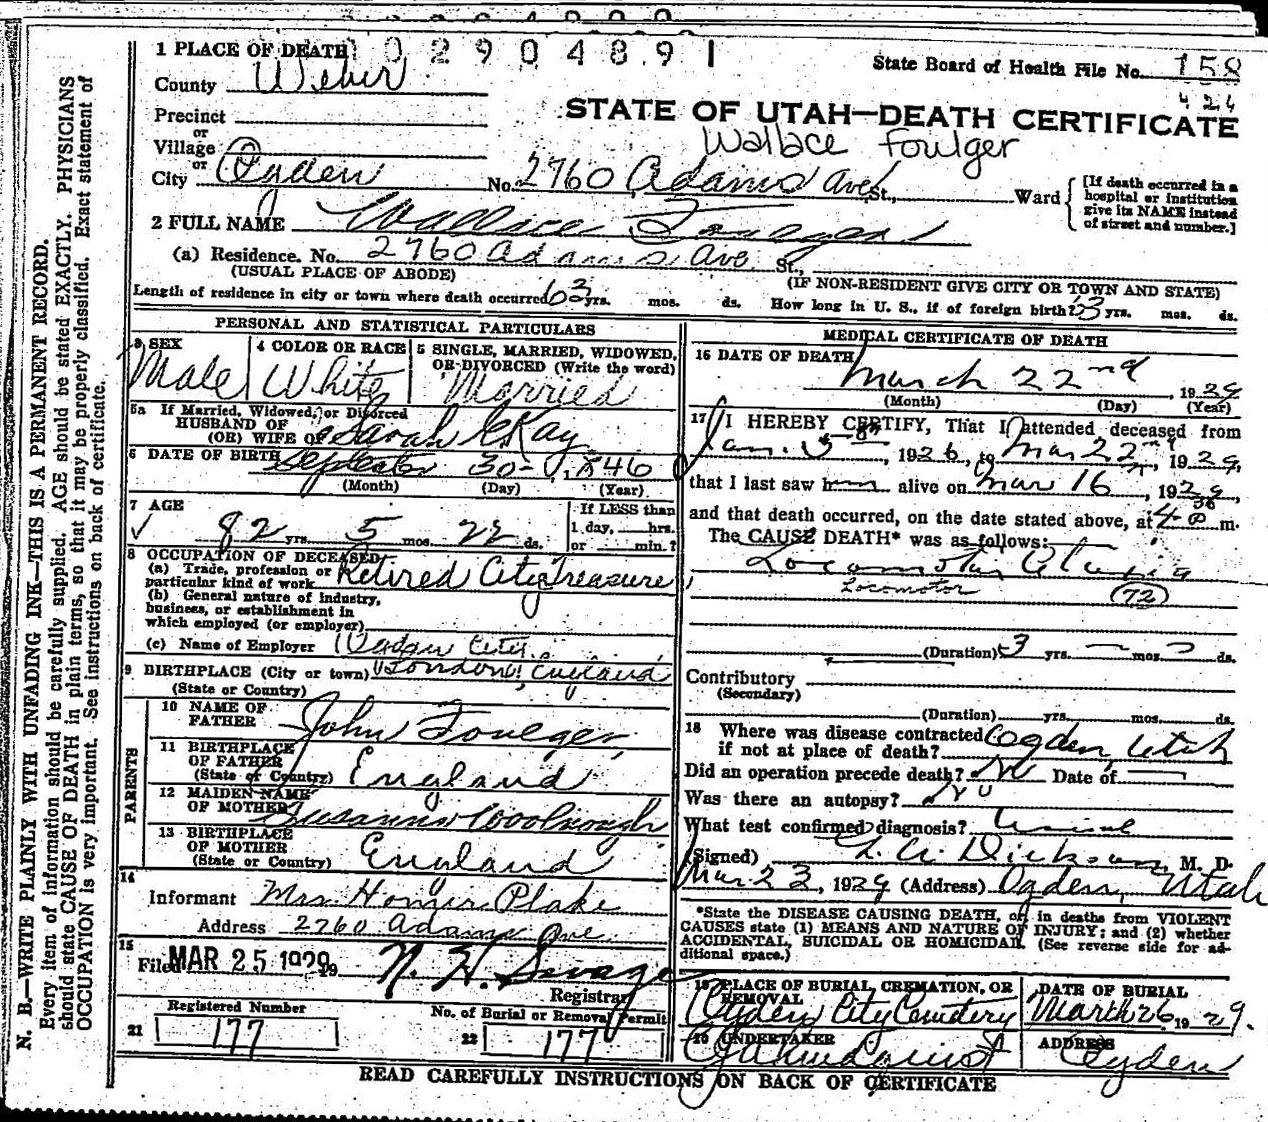 1 PLACE OF DEATH 02904891
State Board of Health File No. 158
424
County Weber
STATE OF UTAH—DEATH CERTIFICATE
Precinct
or
Wallace Foulger
Village
or
City Ogden No. 2760 Adams Ave St., Ward
[If death occurred in a hospital or institution give its NAME instead of street and number.]
2 FULL NAME Wallace Foulger
(a) Residence. No. 2760 Adams Ave. St.,
(USUAL PLACE OF ABODE) (IF NON-RESIDENT GIVE CITY OR TOWN AND STATE)
Length of residence in city or town where death occurred 63 yrs. mos. ds. How long in U. S., if of foreign birth? 63 yrs. mos. ds.
PERSONAL AND STATISTICAL PARTICULARS
3 SEX
Male
4 COLOR OR RACE
White
5 SINGLE, MARRIED, WIDOWED,
OR DIVORCED (Write the word)
Married
5a If Married, Widowed, or Divorced
HUSBAND OF
(OR) WIFE OF Sarah Kay
6 DATE OF BIRTH September 30 - , 1846
(Month) (Day) (Year)
7 AGE
82 yrs. 5 mos. 22 ds.
If LESS than
1 day, hrs.
or min.?
8 OCCUPATION OF DECEASED
(a) Trade, profession or
particular kind of work Retired City Treasure
(b) General nature of industry,
business, or establishment in
which employed (or employer)
(c) Name of Employer Ogden City.
9 BIRTHPLACE (City or town) London, England
(State or Country)
PARENTS
10 NAME OF
FATHER John Foulger
11 BIRTHPLACE
OF FATHER
(State or Country) England
12 MAIDEN NAME
OF MOTHER Susanna Woolnough
13 BIRTHPLACE
OF MOTHER
(State or Country) England
14
Informant Mrs. Homer Blake
Address 2760 Adams Ave.
15
Filed MAR 25 1929 19 N. H. Savage
Registrar
Registered Number
21 177
No. of Burial or Removal Permit
22 177
MEDICAL CERTIFICATE OF DEATH
16 DATE OF DEATH
March 22nd, 1929
(Month) (Day) (Year)
17 I HEREBY CERTIFY, That I attended deceased from
Jan. 5, 1926, to Mar 22nd, 1929,
that I last saw him alive on Mar 16, 1929,
and that death occurred, on the date stated above, at 4 30 m.
The CAUSE DEATH* was as follows:
Locomotor Ataxia
Locomotor (72)
(Duration) 3 yrs. mos. ds.
Contributory
(Secondary)
(Duration) yrs. mos. ds.
18 Where was disease contracted
if not at place of death? Ogden, Utah
Did an operation precede death? No Date of
Was there an autopsy? No
What test confirmed diagnosis? Clinical
(Signed) L. A. Dickson, M. D.
Mar. 23, 1929 (Address) Ogden, Utah
*State the DISEASE CAUSING DEATH, or, in deaths from VIOLENT
CAUSES state (1) MEANS AND NATURE OF INJURY; and (2) whether
ACCIDENTAL, SUICIDAL OR HOMICIDAL. (See reverse side for ad-
ditional space.)
19 PLACE OF BURIAL, CREMATION, OR
REMOVAL
Ogden City Cemetery
DATE OF BURIAL
March 26 1929.
20 UNDERTAKER
ADDRESS
Ogden
READ CAREFULLY INSTRUCTIONS ON BACK OF CERTIFICATE
N. B.—WRITE PLAINLY WITH UNFADING INK—THIS IS A PERMANENT RECORD.
Every item of information should be carefully supplied. AGE should be stated EXACTLY. PHYSICIANS
should state CAUSE OF DEATH in plain terms, so that it may be properly classified. Exact statement of
OCCUPATION is very important. See instructions on back of certificate.